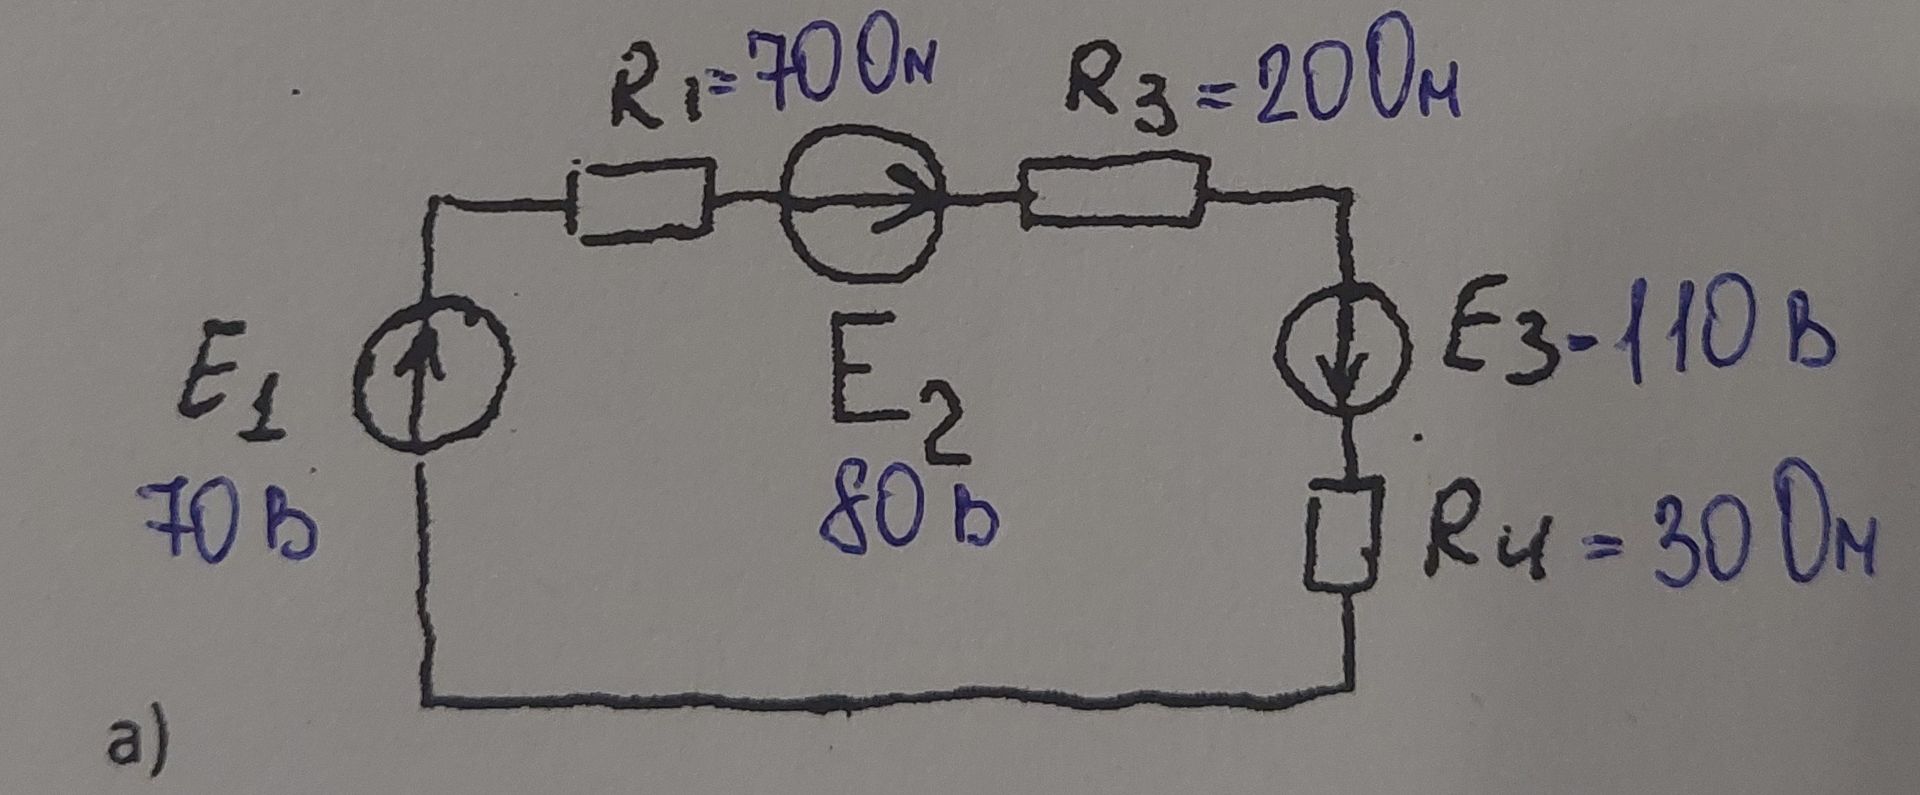 R1=70Ом
R3=20Ом
E1
70В
E2
80В
E3-110В
R4=30Ом
а)